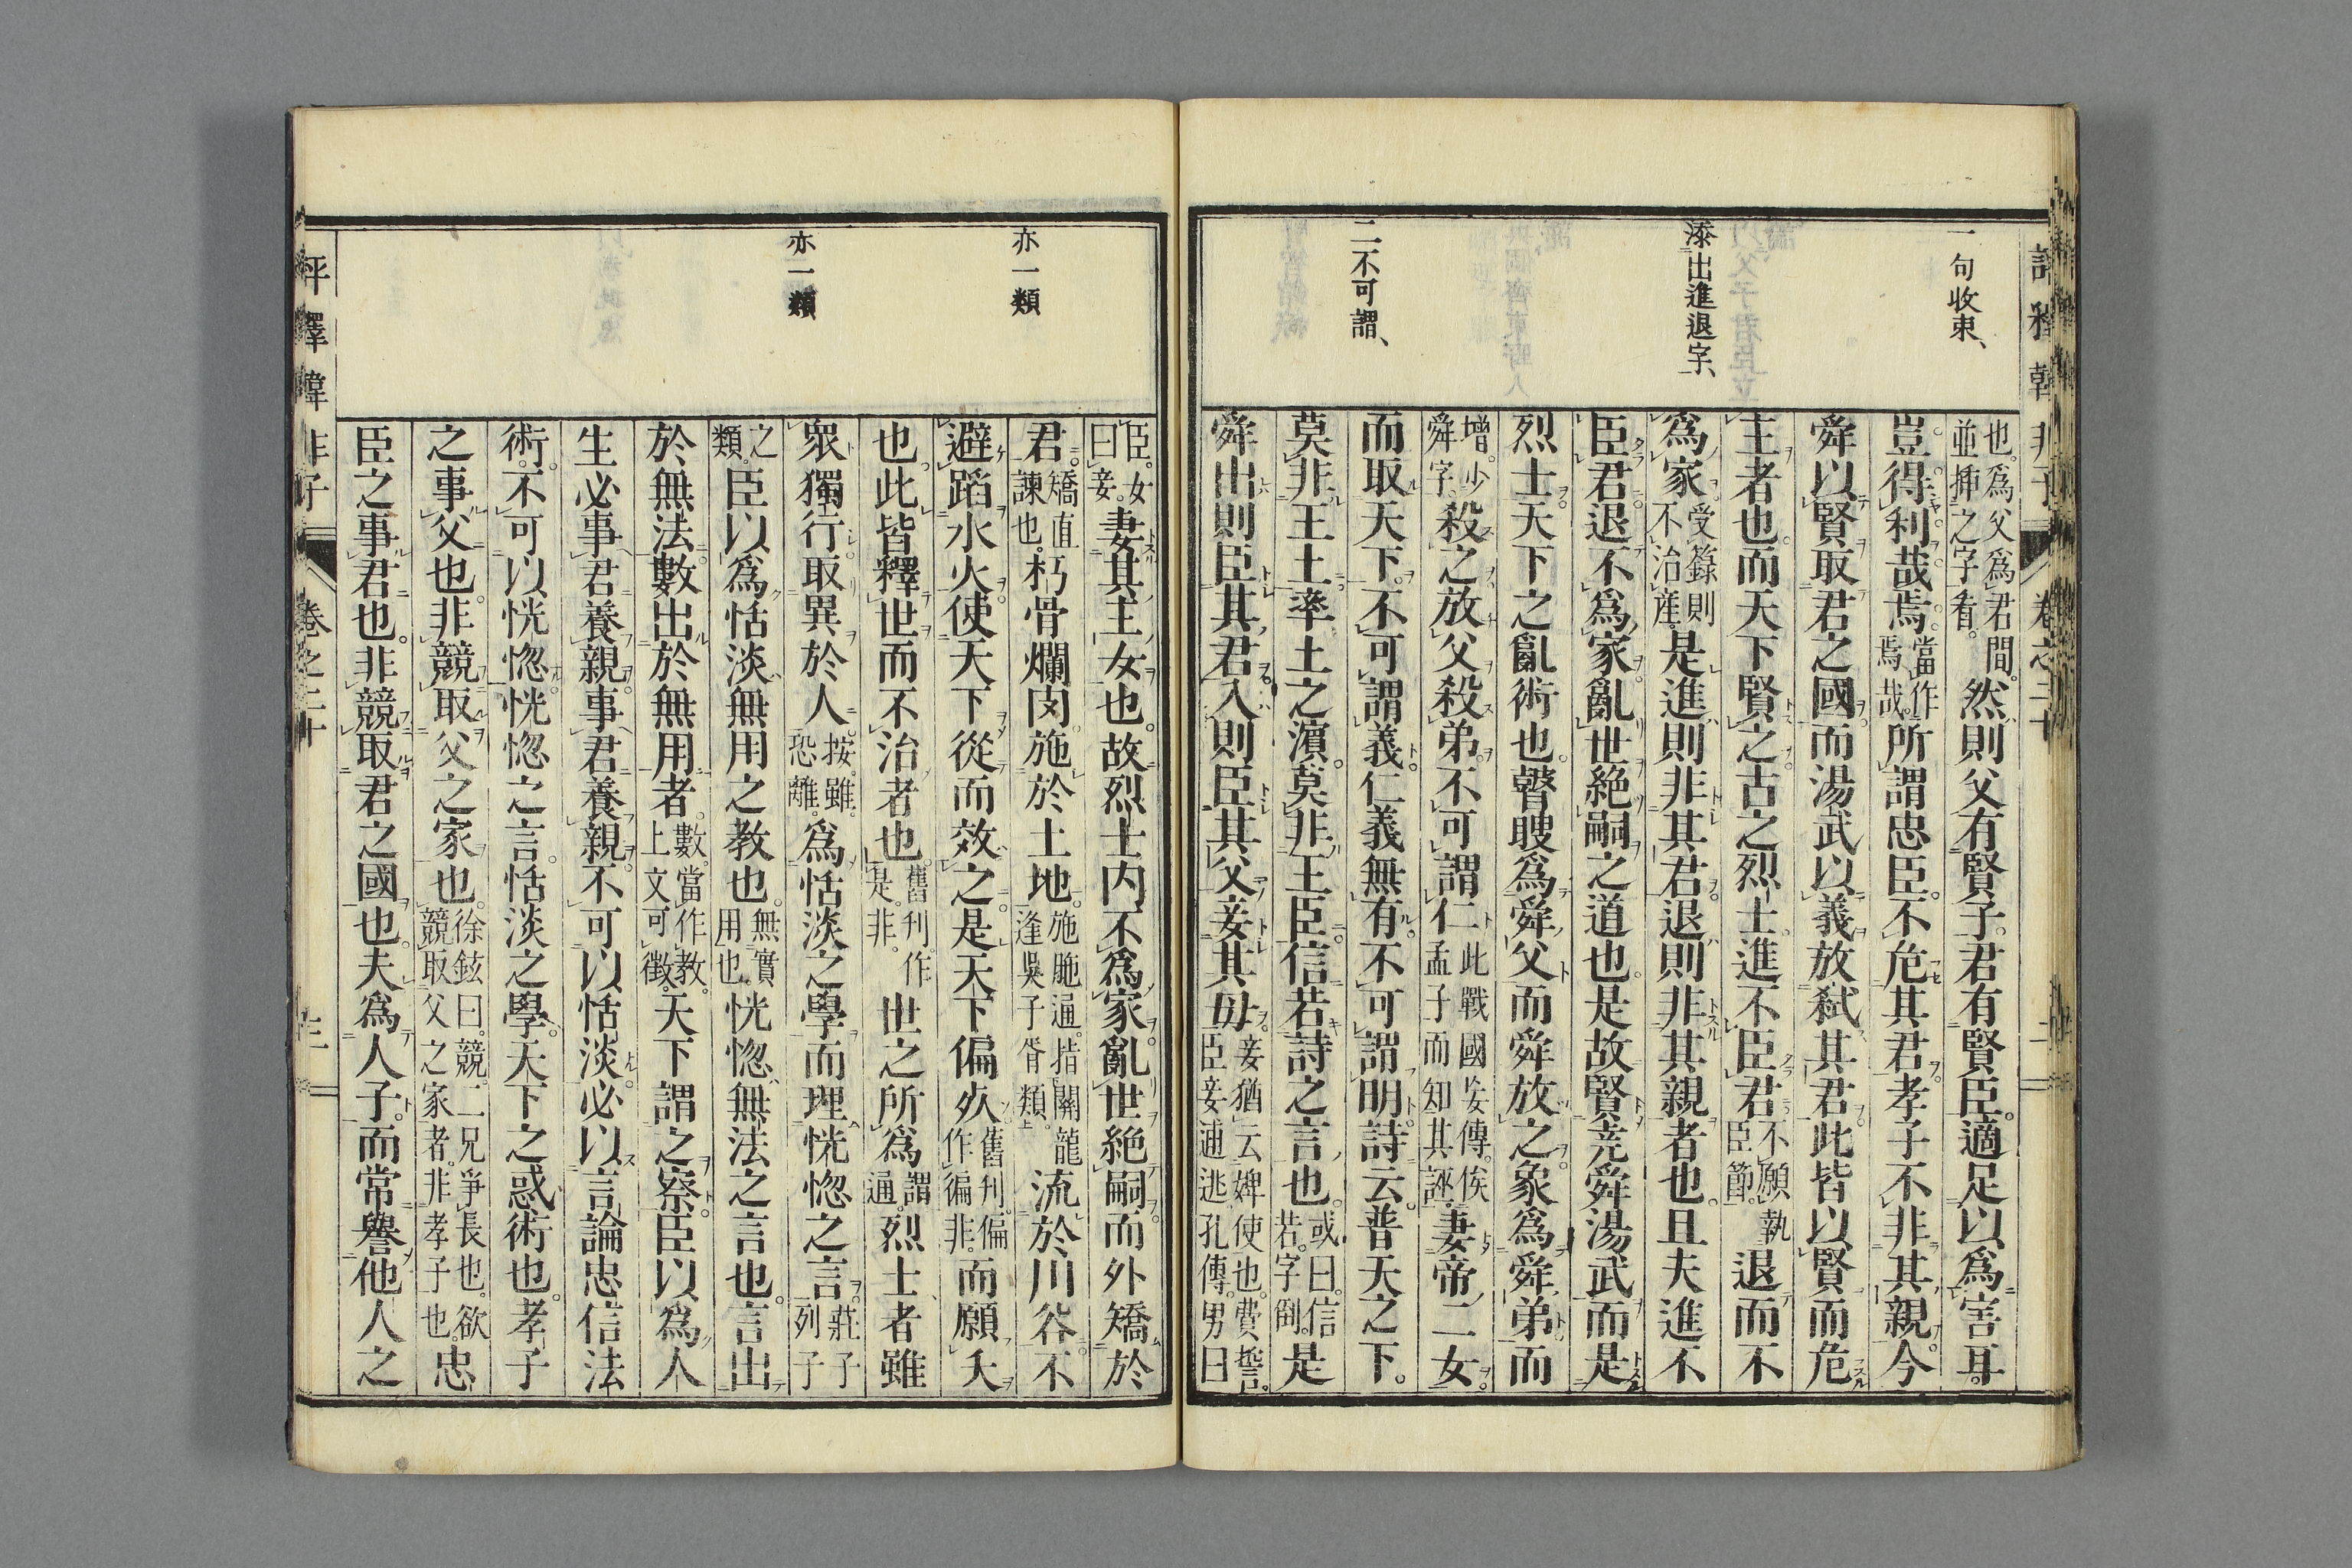 評釋韓非子　卷之二十　二
一句收束、
添出進退字、
二不可謂、
也。爲父爲君間。並挿之字看。然則父有賢子。君有賢臣。適足以爲害耳。
豈得利哉焉。當作焉哉。所謂忠臣。不危其君。孝子不非其親。今
舜以賢取君之國。而湯武以義放弑其君。此皆以賢而危
主者也。而天下賢之。古之烈士。進不臣君。不願執臣節。退而不
爲家。受籙則不治産。是進則非其君。退則非其親者也。且夫進不
臣君。退不爲家。亂世絶嗣之道也。是故賢堯舜湯武而是
烈士。天下之亂術也。瞽瞍爲舜父。而舜放之。象爲舜弟。而
增。少舜字。殺之。放父殺弟。不可謂仁。此戰國妄傳。俟孟子而知其誣。妻帝二女。
而取天下。不可謂義。仁義無有。不可謂明。詩云。普天之下。
莫非王土。率土之濱。莫非王臣。信若詩之言也。或曰。信若。字倒。是
舜出則臣其君。入則臣其父。妾其母。妾猶云婢使也。費誓。臣妾逋逃。孔傳。男曰
亦一類
亦一類、
臣。女曰妾。妻其主女也。故烈士内不爲家。亂世絶嗣。而外矯於
君。矯直諫也。朽骨爛肉施於土地。施胣通。指關龍逢吳子胥類。流於川谷。不
避蹈水火。使天下從而效之。是天下偏殀舊刋。偏作徧非。而願夭
也。此皆釋世而不治者也。舊刋。作是。非。世之所爲謂通。烈士者雖
衆獨行。取異於人。按。雖。恐離。爲恬淡之學。而理恍惚之言。莊子列子
之類。臣以爲恬淡無用之教也。無實用也。恍惚無法之言也。言出
於無法。數出於無用者。數。當作教。上文可徵。天下謂之察。臣以爲人
生必事君養親。事君養親。不可以恬淡。必以言論忠信法
術。不可以恍惚。恍惚之言。恬淡之學。天下之惑術也。孝子
之事父也。非競取父之家也。徐鉉曰。競。二兄爭長也。欲競取父之家者。非孝子也。忠
臣之事君也。非競取君之國也。夫爲人子。而常譽他人之
評釋韓非子　卷之二十